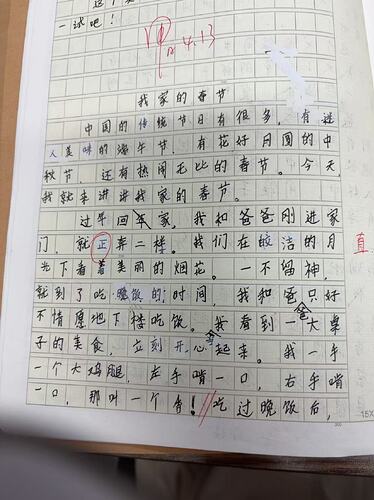 一球吧！
甲 4.13
我家的春节
中国的传统节日有很多，有迷
人美味的端午节，有花好月圆的中
秋节，还有热闹无比的春节。今天，
我就来讲讲我家的春节。
过年回家，我和爸爸刚进家
门，就正奔二楼。我们在皎洁的月 直
光下看着美丽的烟花。一不留神，
就到了吃晚饭的时间，我和爸爸只好
不情愿地下楼吃饭。我看到一大桌
子的美食，立刻开心起来。我一手
一个大鸡腿，左手啃一口，右手啃
一口，那叫一个香！//吃过晚饭后，